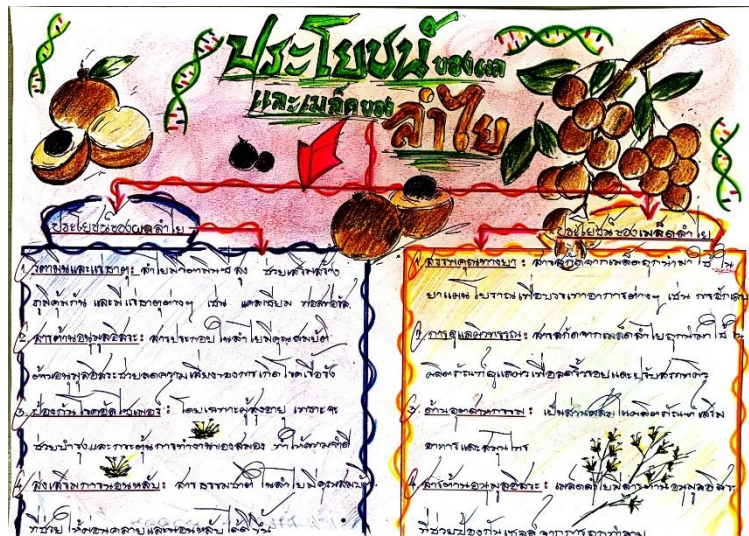 ประโยชน์ของผล
และเมล็ดของ
ลำไย
ประโยชน์ของผลลำไย
1. วิตามินและแร่ธาตุ: ลำไยมีวิตามินซีสูง ช่วยเสริมสร้าง
ภูมิคุ้มกัน และมีแร่ธาตุต่างๆ เช่น แคลเซียม ฟอสฟอรัส
2. สารต้านอนุมูลอิสระ: สารประกอบในลำไยมีคุณสมบัติ
ต้านอนุมูลอิสระช่วยลดความเสี่ยงของการเกิดโรคเรื้อรัง
3. ป้องกันโรคอัลไซเมอร์: โดยเฉพาะผู้สูงอายุ เพราะจะ
ช่วยบำรุงและกระตุ้นการทำงานของสมอง ทำให้ความจำดี
4. ส่งเสริมการนอนหลับ: สารธรรมชาติในลำไยมีคุณสมบัติ
ที่ช่วยให้ผ่อนคลายและนอนหลับได้ดีขึ้น
ประโยชน์ของเมล็ดลำไย
1. สรรพคุณทางยา: สารสกัดจากเมล็ดถูกนำมาใช้ใน
ยาแผนโบราณเพื่อบรรเทาอาการต่างๆ เช่น การอักเสบ
2. การดูแลผิวพรรณ: สารสกัดจากเมล็ดลำไยถูกนำมาใช้ใน
ผลิตภัณฑ์ดูแลผิวเพื่อลดริ้วรอยและปรับสภาพผิว
3. ด้านอุตสาหกรรม: เป็นส่วนผสมในผลิตภัณฑ์เสริม
อาหารและสมุนไพร
4. สารต้านอนุมูลอิสระ: เมล็ดลำไยมีสารต้านอนุมูลอิสระ
ที่ช่วยป้องกันเซลล์จากการถูกทำลาย